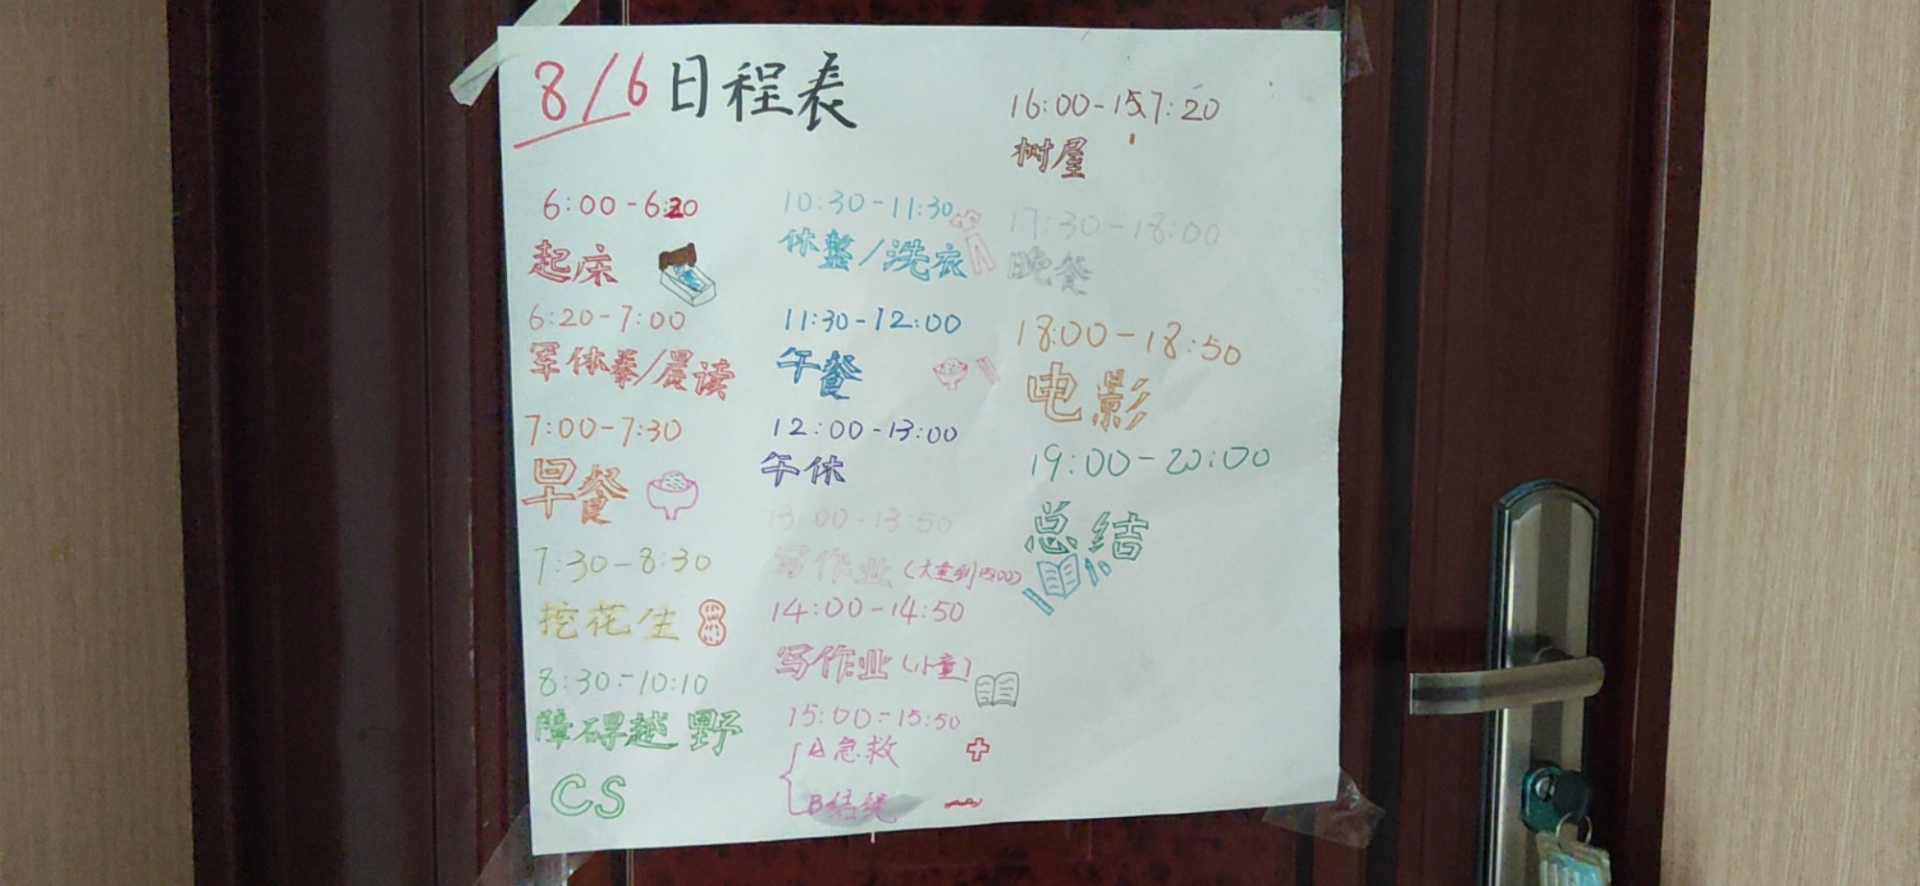 8/6日程表
6:00-6:20
起床
6:20-7:00
军体拳/晨读
7:00-7:30
早餐
7:30-8:30
挖花生
8:30-10:10
障碍越野
CS
10:30-11:30
休整/洗衣
11:30-12:00
午餐
12:00-13:00
午休
13:00-13:50
写作业(大童到
14:00-14:50
写作业(小童)
15:00-15:50
A急救
B结绳
16:00-17:20
树屋
17:30-18:00
晚餐
18:00-18:50
电影
19:00-20:00
总结